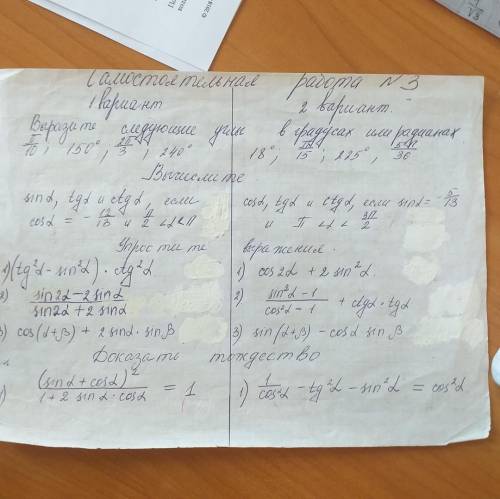 Самостоятельная работа №3
1 вариант
2 вариант.
Выразите следующие углы в градусах или радианах
π/10 ; 150° ; 2π/3 ; 240°
18° ; π/15 ; 225° ,
Вычислите
sinα, tgα и ctgα, если
cosα = - 12/13 и π/2 < α < π
cosα, tgα и ctgα, если sinα = - 5/13
и π < α < 3π/2
Упростите выражения.
1) (tg²α - sin²α) · ctg²α
2) (sin2α - 2 sinα)/(sin2α + 2 sinα)
3) cos(α+β) + 2 sinα · sin β
1) cos2α + 2 sin²α
2) (sin²α - 1)/(cos²α - 1) + ctgα · tgα
3) sin(α+β) - cosα sin β
Доказать тождество
1) (sinα + cosα)²/(1 + 2 sinα · cosα) = 1
1) 1/cos²α - tg²α - sin²α = cos²α